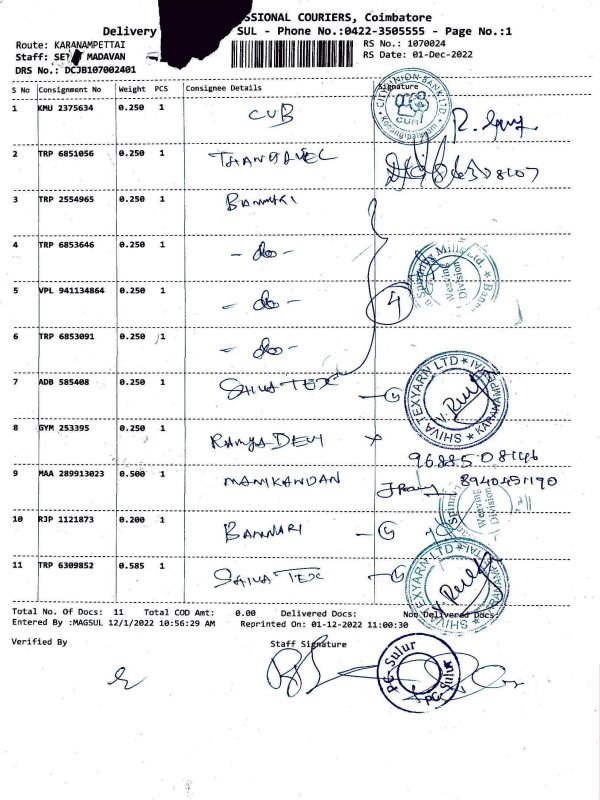 SSIONAL COURIERS, Coimbatore
Delivery SUL - Phone No.:0422-3505555 - Page No.:1
Route: KARANAMPETTAI RS No.: 1070024
MADAVAN RS Date: 01-Dec-2022
DRS No.: DCJB107002401
S No Consignment No Weight PCS Consignee Details Signature
1 KMU 2375634 0.250 1 CUB
2 TRP 6851056 0.250 1 THANGAVEL
3 TRP 2554965 0.250 1 BANNARI
4 TRP 6853646 0.250 1 - do -
5 VPL 941134864 0.250 1 - do - 4
6 TRP 6853091 0.250 1 - do -
7 ADB 585408 0.250 1 SHIVA TEX
SHIVA TEXYARN LTD
8 GYM 253395 0.250 1 RAMYA DEVI
9688508146
9 MAA 289913023 0.500 1 MANIKANDAN 8940451190
10 RJP 1121873 0.200 1 BANNARI
Weaving Division
11 TRP 6309852 0.585 1 SHIVA TEX
SHIVA TEXYARN LTD
Total No. Of Docs: 11 Total COD Amt: 0.00 Delivered Docs: Non Delivered Docs:
Entered By :MAGSUL 12/1/2022 10:56:29 AM Reprinted On: 01-12-2022 11:00:30
Verified By Staff Signature
PC-Sulur
PC-Sulur